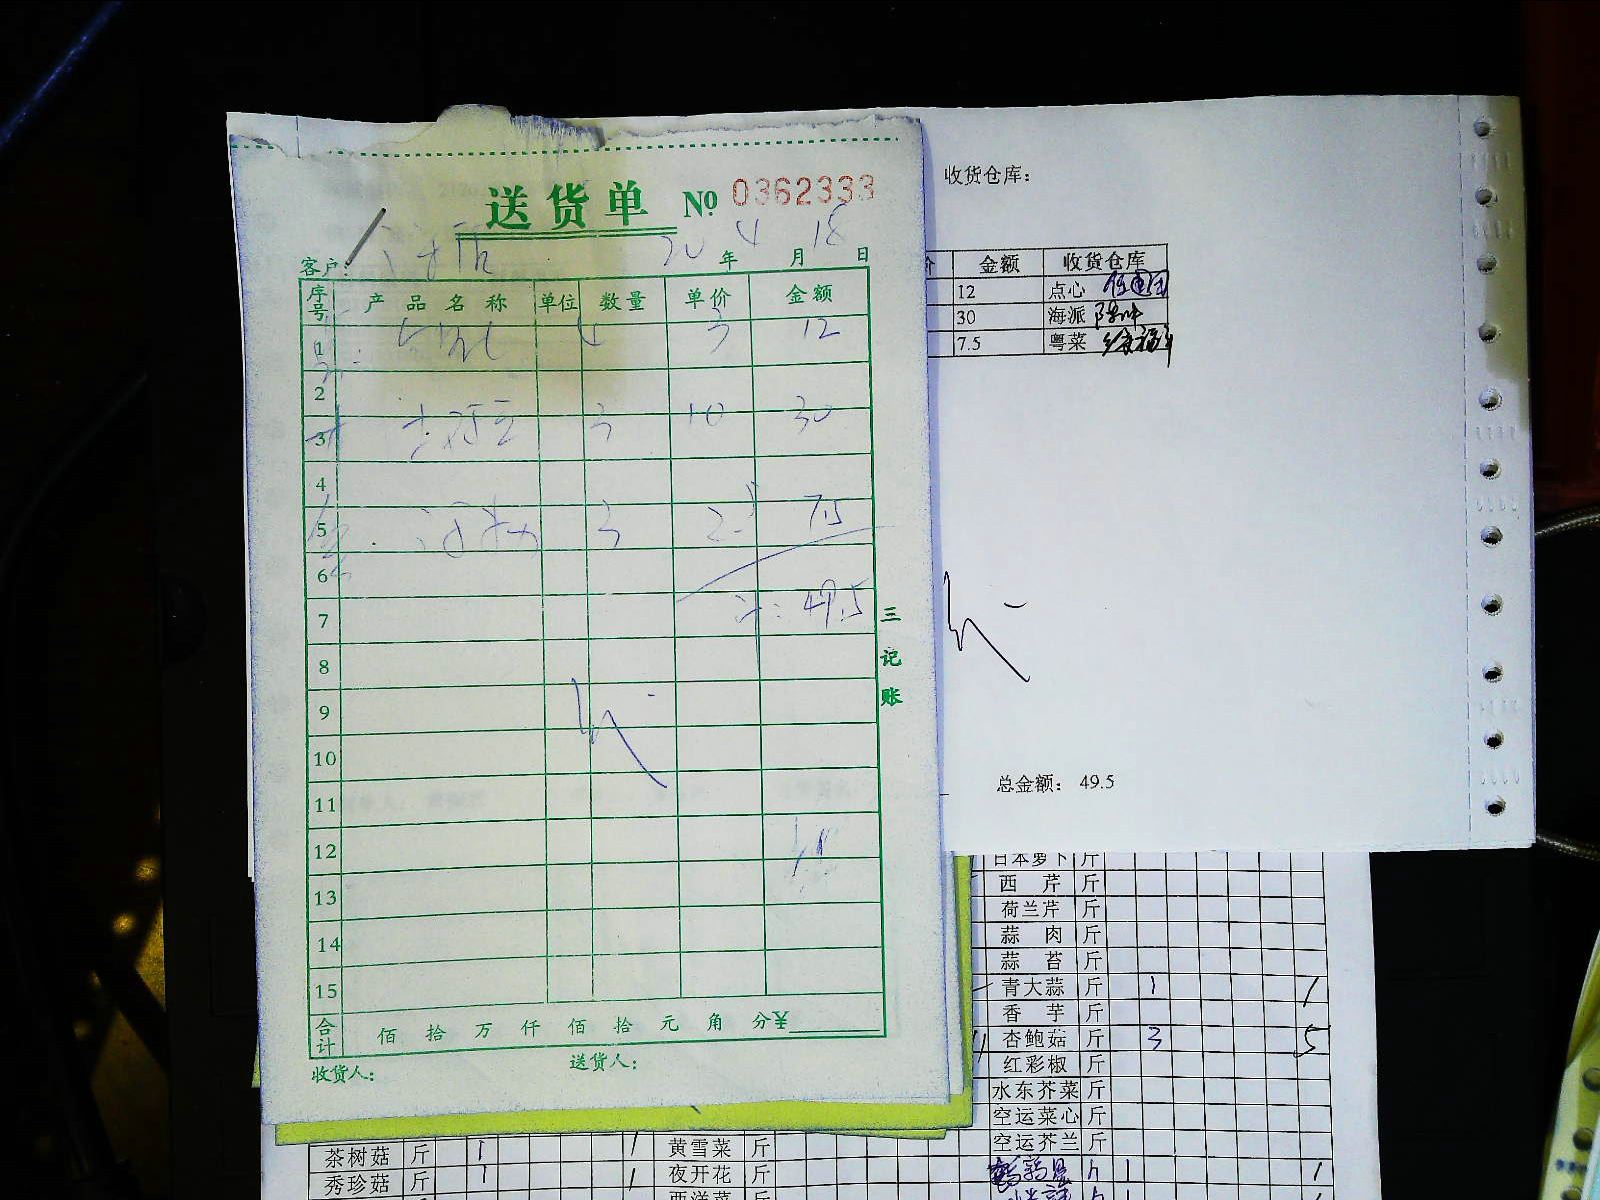 送货单 № 0362333
客户： 20 年 4 月 18 日
序号 产品名称 单位 数量 单价 金额
1 4 3 12
2
3 3 10 30
4
5 河粉 3 2.5 7.5
6
7 计: 49.5
8
9
10
11
12
13
14
15
合计 佰 拾 万 仟 佰 拾 元 角 分 ¥
收货人： 送货人：
三记账
收货仓库：
价 金额 收货仓库
12 点心
30 海派
7.5 粤菜
总金额： 49.5
日本萝卜 斤
西芹 斤
荷兰芹 斤
蒜肉 斤
蒜苔 斤
青大蒜 斤 1 1
香芋 斤
杏鲍菇 斤 3 5
红彩椒 斤
水东芥菜 斤
空运菜心 斤
空运芥兰 斤
茶树菇 斤 1 1 黄雪菜 斤
秀珍菇 斤 1 1 夜开花 斤
西洋菜 斤